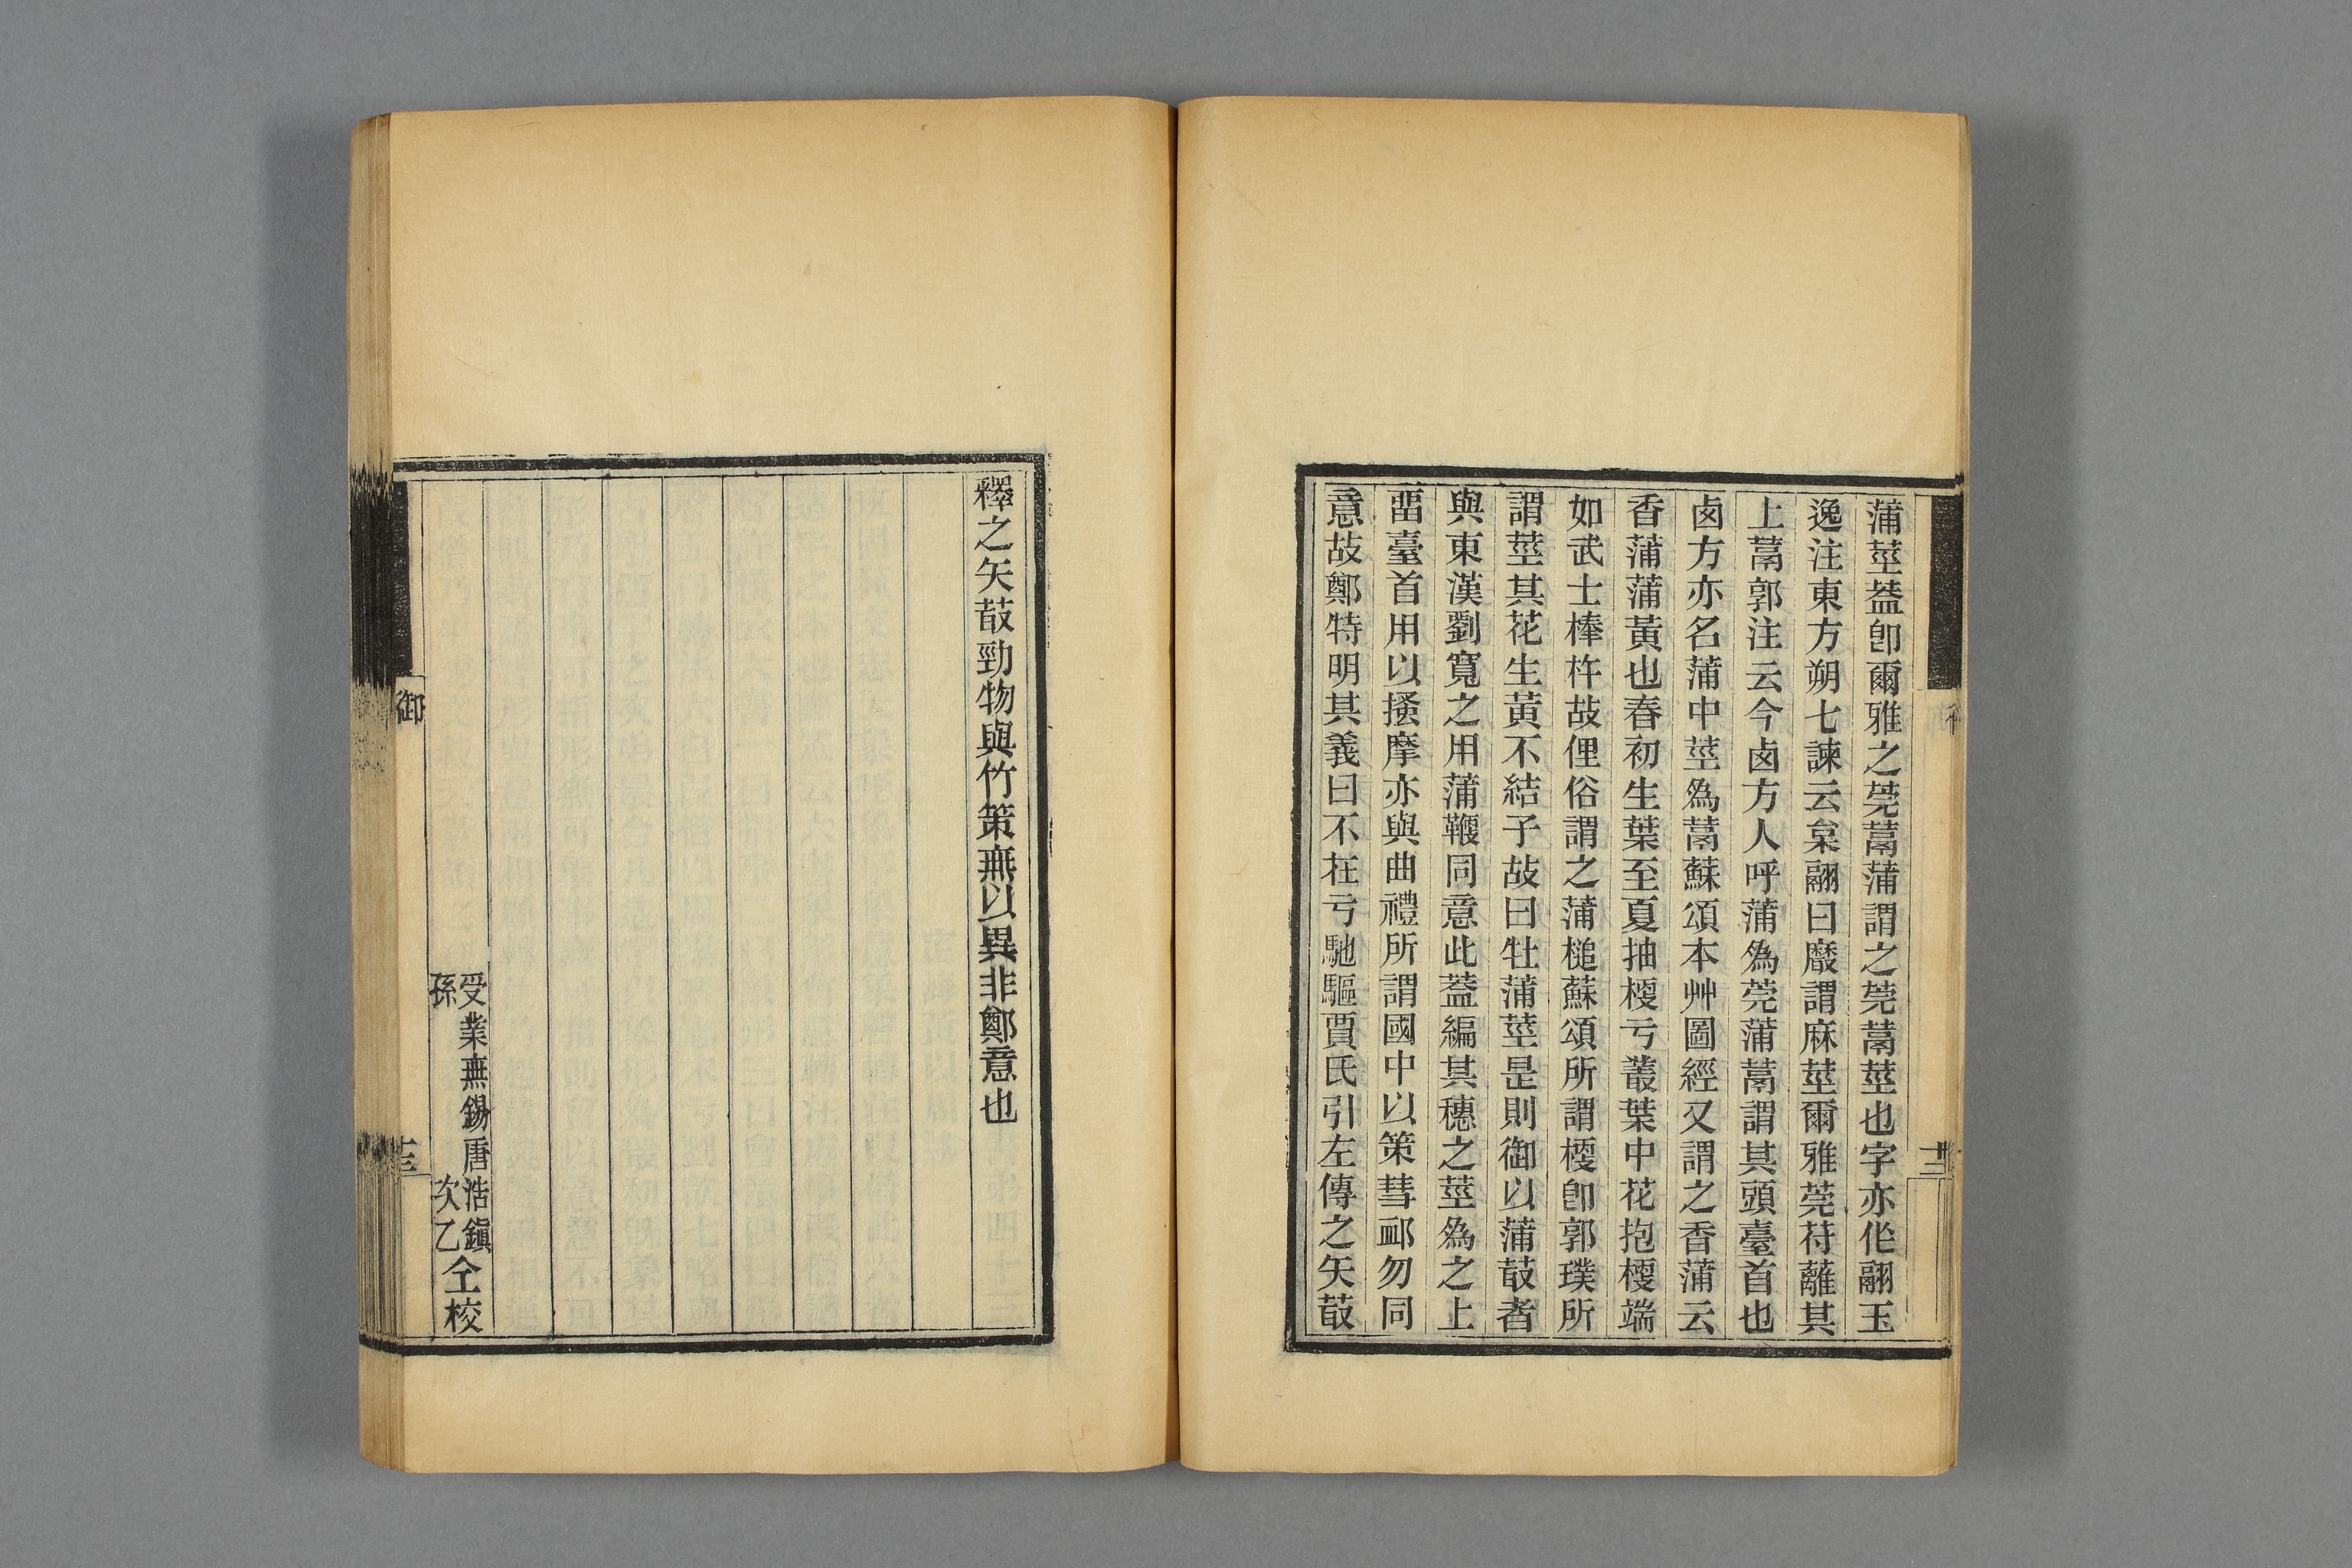 蒲莖葢卽爾雅之莞蒚蒲謂之莞蒚莖也字亦作翮王
逸注東方朔七諫云枲翮曰黀謂麻莖爾雅莞苻蘺其
上蒚郭注云今卤方人呼蒲為莞蒲蒚謂其頭臺首也
卤方亦名蒲中莖為蒚蘇頌本艸圖經又謂之香蒲云
香蒲蒲黃也春初生葉至夏抽梗亏叢葉中花抱梗端
如武士棒杵故俚俗謂之蒲槌蘇頌所謂梗卽郭璞所
謂莖其花生黃不結子故曰牡蒲莖是則御以蒲菆者
與東漢劉寬之用蒲鞭同意此葢編其穗之莖為之上
畱臺首用以搔摩亦與曲禮所謂國中以策彗䘏勿同
意故鄭特明其義曰不在亏馳驅賈氏引左傳之矢菆
釋之矢菆勁物與竹策無以異非鄭意也
受業無錫唐浩鎮
孫 次乙
仝校
御
十三